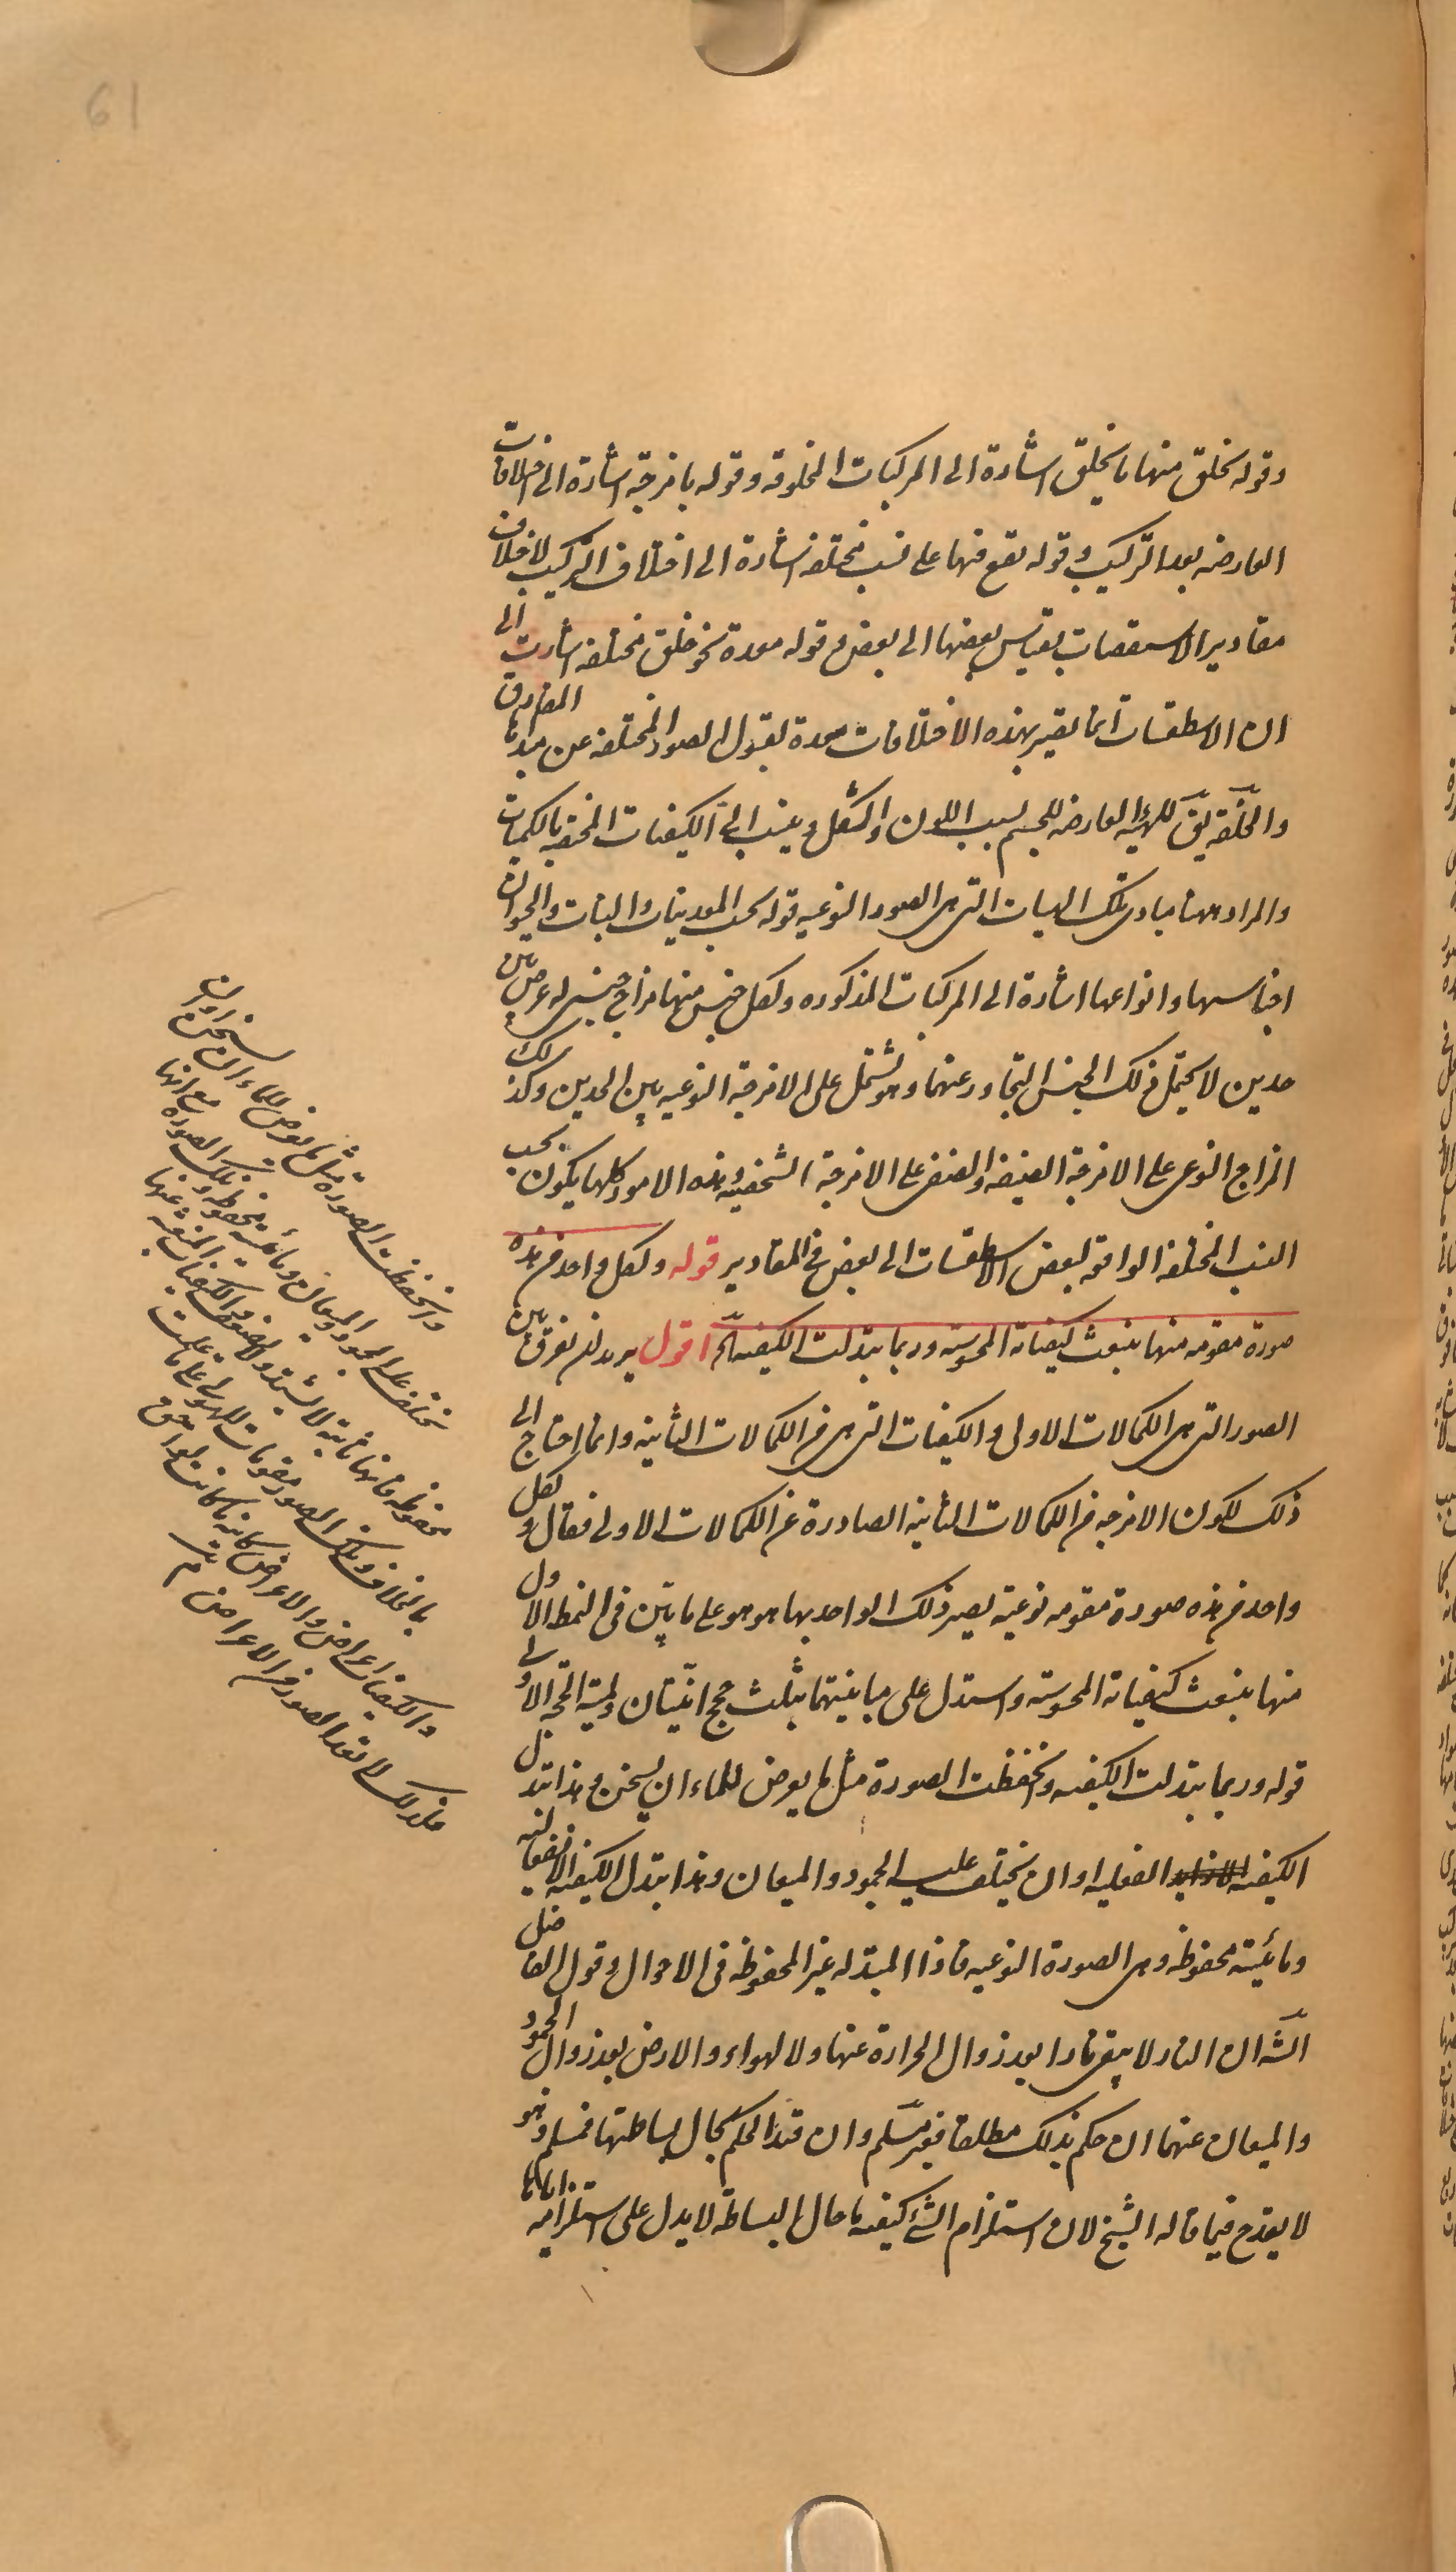 61
وقوله يخلق منها ما يخلق اشارة الى المركبات المخلوقه وقوله بامزجة اشارة الى اختلافات
العارضه بعد التركيب وقوله يقع فيها على نسب مختلفه اشارة الى اختلاف التركيب لاختلاف
مقادير الاسطقسات بقياس بعضها الى بعض وقوله معدة نحو خلق مختلفه اشارت الى
ان الاسطقسات انما يصير بهذه الاختلافات معدة لقبول الصور المختلفه عن مبدئها المفارق
والخلقة يق للهيئه العارضه للجسم بسبب اللون والشكل وينسب الى الكيفيات المختصه بالكميات
والمراد ههنا مبادى تلك الهيات التى هى الصور النوعيه قوله بحسب المعدنيات والنبات والحيوان
اجناسها وانواعها اشارة الى المركبات المذكوره ولكل جنس منها مزاج جنسى له عرض بين
حدين لا يحتمل ذلك الجنس التجاوز عنهما وهو يشتمل على الامزجة النوعيه بين الحدين وكذلك
المزاج النوعى على الامزجة الصنفيه والصنفى على الامزجة الشخصيه وهذه الامور كلها يكون بحسب
النسب المختلفه الواقعه لبعض الاسطقسات الى بعض فى المقادير قوله ولكل واحد من هذه
صورة مقومه منها ينبعث كيفياته المحسوسة وربما تبدلت الكيفيه آلخ اقول يريد ان يفرق بين
الصور التى هى الكمالات الاولى والكيفيات التى هى من الكمالات الثانيه وانما احتاج الى
ذلك لكون الامزجه من الكمالات الثانيه الصادرة عن الكمالات الاولى فقال ولكل
واحد من هذه صورة مقومه نوعية يصير ذلك الواحد بها هو هو على ما بين فى النمط الاول
منها ينبعث كيفياته المحسوسة واستدل على مباينتهما بثلث حجج انيتان ولمية الحجة الاولى
قوله وربما تبدلت الكيفيه وانحفظت الصورة مثل ما يعرض للماء ان يسخن وهذا تبدل
الكيفيه الفعليه او ان يختلف عليه الجمود والميعان وهذا تبدل الكيفيه الانفعاليه
ومائيته محفوظه وهى الصورة النوعيه فاذا المتبدله غير المحفوظه فى الاحوال وقول الفاضل
الشه ان النار لا يبقى نارا بعد زوال الحرارة عنها ولا الهواء والارض بعد زوال الجمود
والميعان عنهما ان حكم بذلك مطلقا فغير مسلم وان قيد الحكم بحال بساطتها فمسلم وهو
لا يقدح فيما قاله الشيخ لان استلزام الشئ كيفيه ما حال البساطه لا يدل على استلزامه اياها
وانحفظت الصورة مثل ما يعرض للماء ان يسخن او ان
يختلف عليه الجمود والميعان ومائيته محفوظه وتلك الصورة مع انها
محفوظه فانها ثابتة لا تشتد ولا تضعف والكيفيات المنبعثة عنها
بالخلاف وتلك الصور مقومات للهيولى على ما علمت
والكيفيات اعراض والاعراض كائنة ما كانت لواحق
فلذلك لا تعد الصور من الاعراض